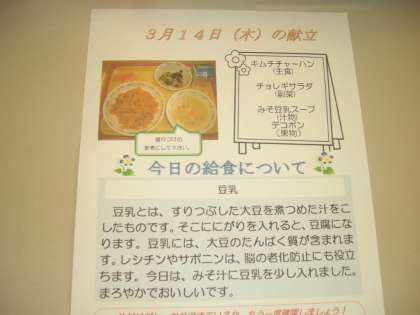 3月14日(木)の献立
キムチチャーハン
(主食)
チョレギサラダ
(副菜)
みそ豆乳スープ
(汁物)
デコポン
(果物)
盛りつけの
参考にして下さい。
今日の給食について
豆乳
豆乳とは、すりつぶした大豆を煮つめた汁をこ
したものです。そこににがりを入れると、豆腐にな
ります。豆乳には、大豆のたんぱく質が含まれま
す。レシチンやサポニンは、脳の老化防止にも役立
ちます。今日は、みそ汁に豆乳を少し入れました。
まろやかでおいしいです。
もう一度確認しましょう!